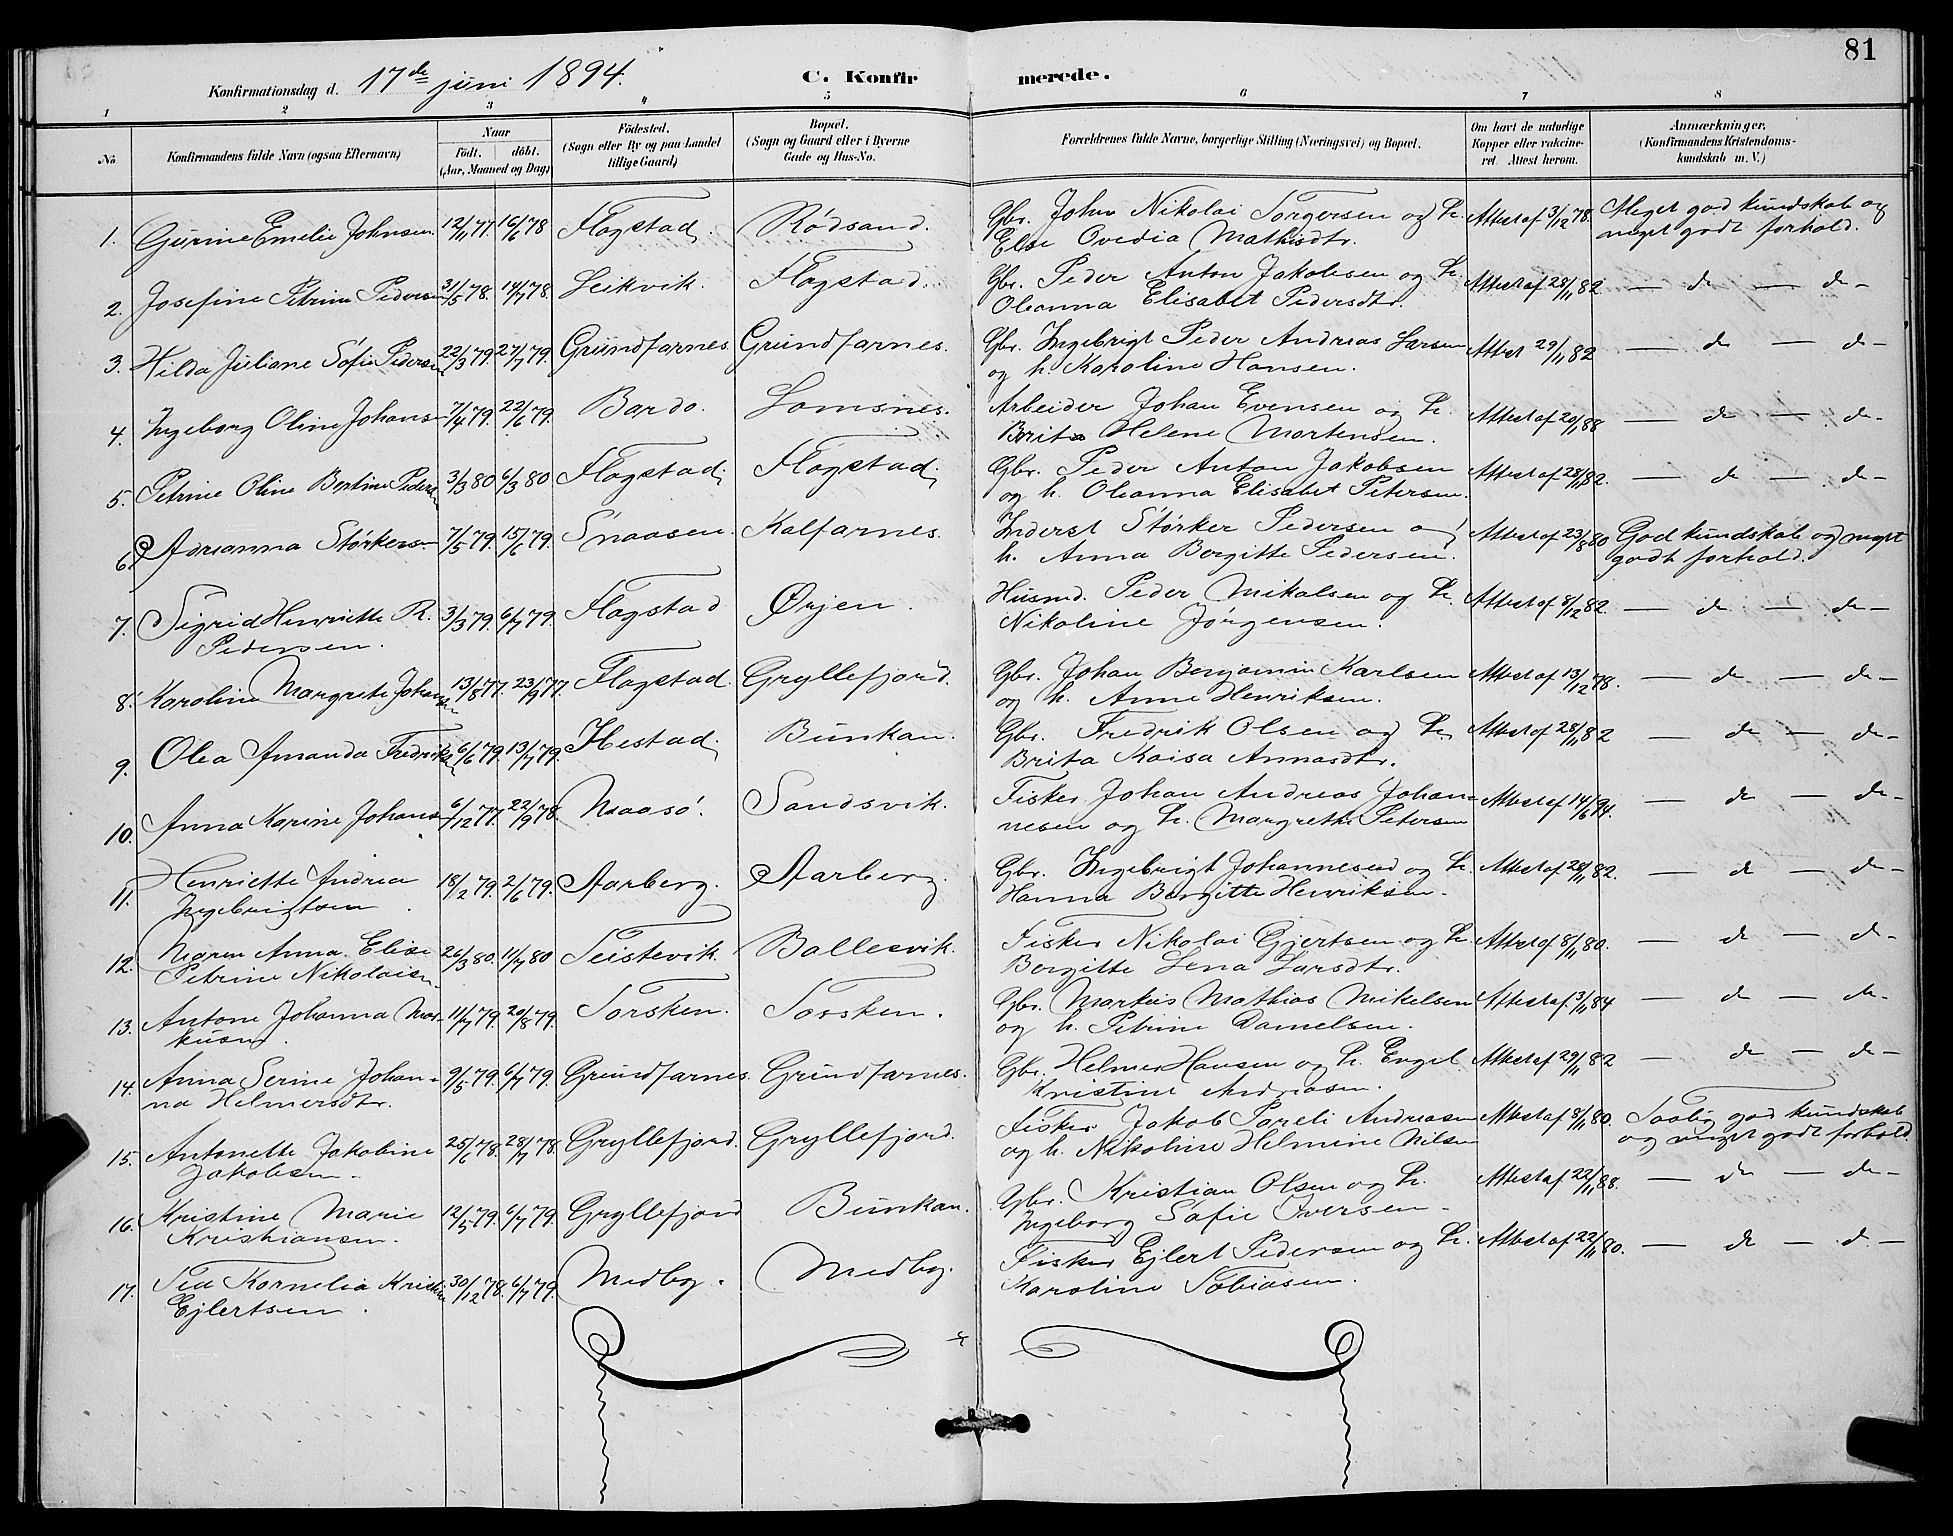 81
Konfirmationsdag d. 17de juni 1894.
C. Konfirmerede.
1 2 3 4 5 6 7 8
No
Konfirmandens fulde Navn (ogsaa Efternavn)
Naar
Födt. döbt.
(Aar, Maaned og Dag)
Födested.
(Sogn eller By og paa Landet
tillige Gaard)
Bopæl.
(Sogn og Gaard eller i Byerne
Gade og Hus-No.
Forældrenes fulde Navne, borgerlige Stilling (Næringsvei) og Bopæl.
Om havt de naturlige
Kopper eller vakcine-
ret. Attest herom.
Anmærkninger.
(Konfirmandens Kristendoms-
kundskab m. V.)
1. Gurine Emelie Johnsen 12/11 77. 16/6 78 Flagstad. Rödsand. Gbr. Johan Nikolai Torgersen og h. Attest af 3/12 78. Meget god kundskab og
Else Ovedia Mathisdtr. meget godt forhold.
2. Josefine Petrine Pedersen 31/5 78. 14/7 78. Leikvik. Flagstad. Gbr. Peder Anton Jakobsen og h. Attest af 28/11 82. — do — do —
Oleanna Elisabet Pedersdtr.
3. Hilda Juliane Sofie Pedersen 22/3 79. 27/7 79. Grundfarnes. Grundfarnes. Gbr. Ingebrigt Peder Andreas Larsen Attest 29/11 82 — do — do —
og h. Karoline Hansen.
4. Ingeborg Oline Johans 7/4 79. 22/6 79. Bardo. Lomsnes. Arbeider Johan Evensen og h. Attest af 20/11 88 — do — do —
Brita Helene Mortensen.
5. Petrine Oline Bertine Peders 3/3 80 6/3 80 Flagstad. Flagstad. Gbr. Peder Anton Jakobsen Attest af 28/11 82. — do — do —
og h. Oleanna Elisabet Petersen.
6. Adrianna Störkers 7/5 79. 15/6 79. Snaasen. Kalfarnes. Inderst Störker Pedersen og Attest af 23/8 80 God kundskab og meget
h. Anna Bergitte Pedersen. godt forhold.
7. Sigrid Henriette R. 3/3 79. 6/7 79. Flagstad Örjen. Husmd. Peder Mikalsen og h. Attest af 8/12 82. — do — do —
Pedersen. Nikoline Jörgensen.
8. Karoline Margrete Johan 13/8 77. 23/9 77. Flagstad. Gryllefjord. Gbr. Johan Benjamin Karlsen Attest af 13/12 78. — do — do —
og h. Anne Henriksen.
9. Olea Amanda Fredriks 6/6 79. 13/7 79. Hestad. Bunkan. Gbr. Fredrik Olsen og h. Attest af 28/11 82 — do — do —
Brita Kaisa Annasdtr.
10. Anna Karine Johans 6/12 77. 22/9 78. Maasö. Sandsvik. Fisker Johan Andreas Johan- Attest af 14/6 94. — do — do —
nesen og h. Margrethe Petersen
11. Henriette Andrea 18/2 79. 2/6 79. Aarberg. Aarberg. Gbr. Ingebrigt Johannesen og h. Attest af 28/11 82. — do — do —
Ingebrigtsen Hanna Bergitte Henriksen.
12. Maren Anna Elise 26/3 80. 11/7 80 Teistevik. Ballesvik. Fisker Nikolai Gjertsen og h. Attest af 8/11 80. — do — do —
Petrine Nikolaisen Bergitte Lena Larsdtr.
13. Antone Johanna Mar- 11/7 79. 20/8 79. Torsken. Torsken. Gbr. Markus Mathias Mikelsen Attest af 3/11 84 — do — do —
kusen. og h. Petrine Danielsen.
14. Anna Serine Johan- 9/5 79. 6/7 79. Grundfarnes. Grundfarnes. Gbr. Helmer Hansen og h. Engel Attest af 29/11 82 — do — do —
na Helmersdtr. Kristine Andreasen.
15. Antonette Jakobine 25/6 78. 28/7 78. Gryllefjord. Gryllefjord. Fisker Jakob Pareli Andreasen Attest af 8/11 80. Taalig god kundskab
Jakobsen. og h. Nikoline Helmine Nilsen og meget godt forhold.
16. Kristine Marie 12/5 79. 6/7 79. Gryllefjord Bunkan. Gbr. Kristian Olsen og h. Attest af 22/11 88. — do — do —
Kristiansen. Ingeborg Sofie Iversen.
17. Tea Kornelia Kristine 30/12 78. 6/7 79. Medby. Medby. Fisker Ejlert Pedersen og h. Attest af 22/11 80. — do — do —
Ejlertsen. Karoline Tobiasen.